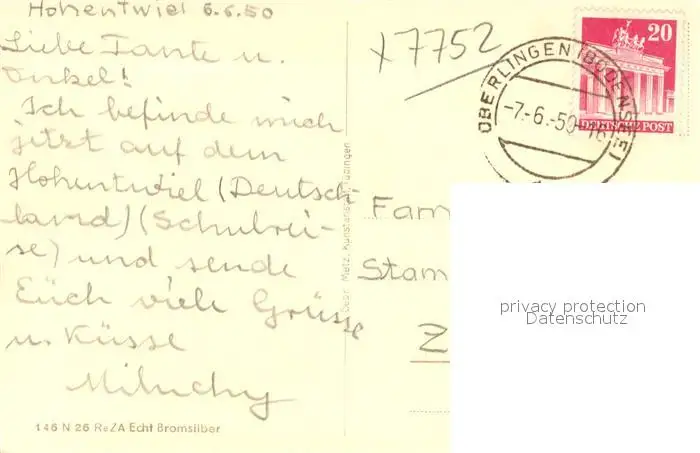 Hohentwiel 6.6.50
Liebe Tante u.
Onkel!
Ich befinde mich
jetzt auf dem
Hohentwiel (Deutsch-
land) (Schulrei-
se) und sende
Euch viele Grüsse
u. Küsse
146 N 26 ReZA Echt Bromsilber
Gebr. Metz, Kunstanstalt, Tübingen
x7752
ÜBERLINGEN (BODENSEE)
-7.-6.-50.-16
20
DEUTSCHE POST
Fam
Stam
Z
privacy protection
Datenschutz